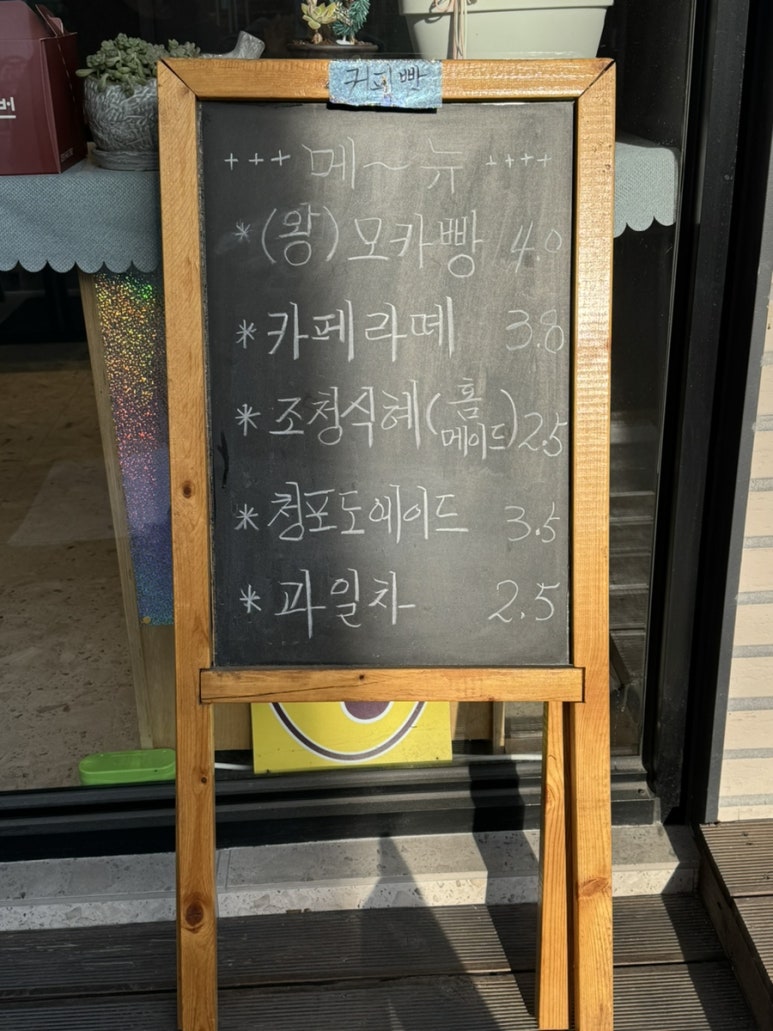 커피빵
+++ 메~뉴 ++++
* (왕) 모카빵 4.0
* 카페라떼 3.8
* 조청식혜(홈메이드) 2.5
* 청포도에이드 3.5
* 과일차 2.5